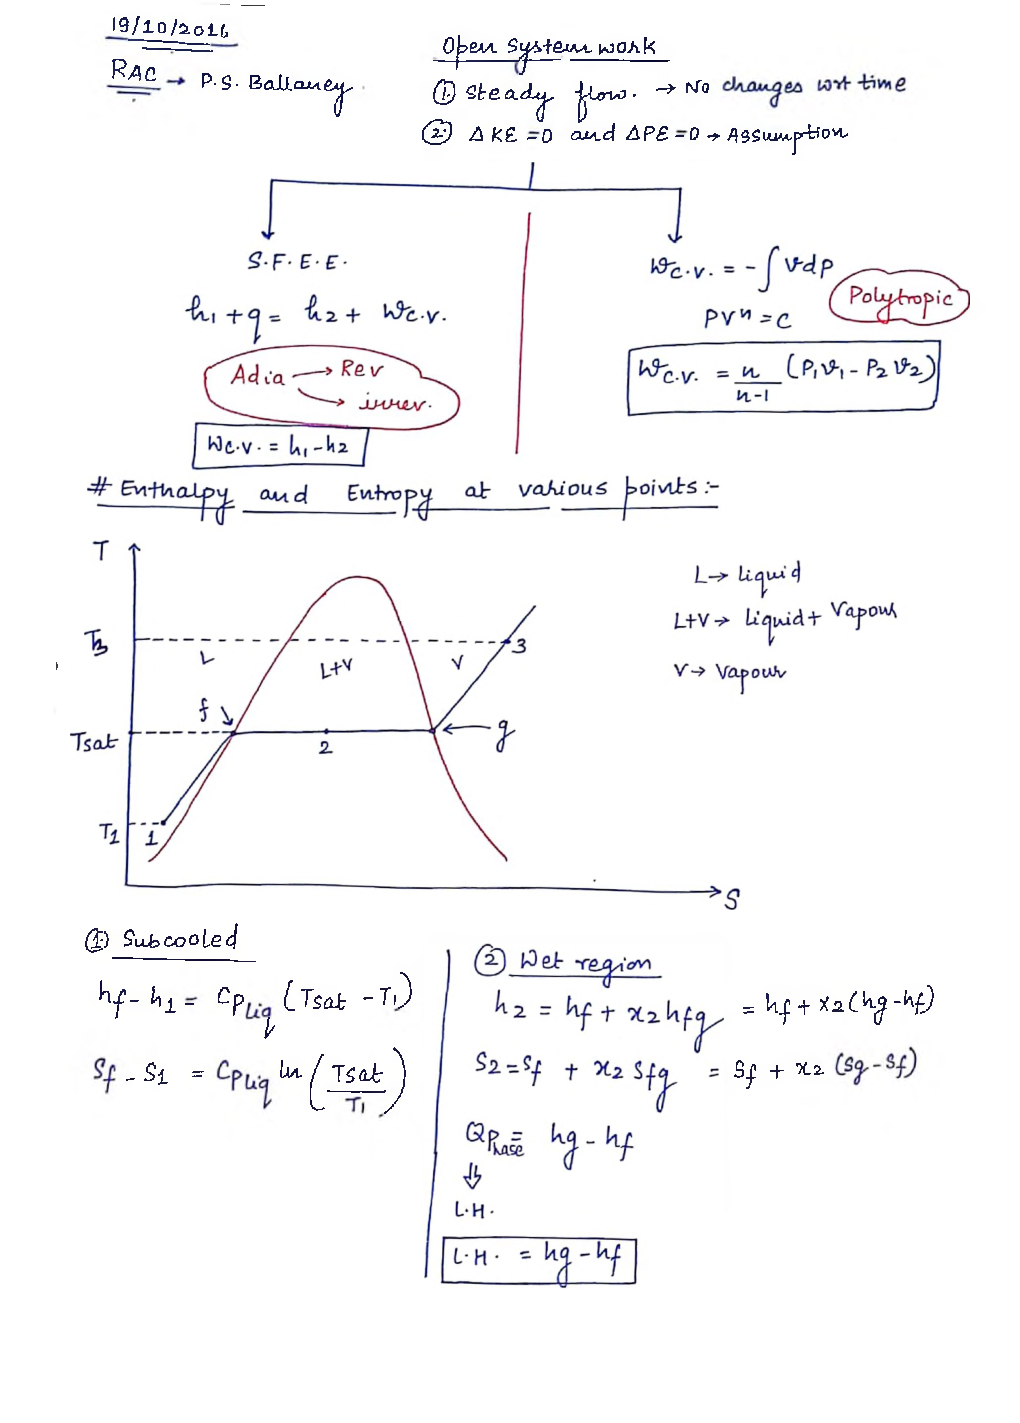 19/10/2016
RAC → P.S. Ballaney.
Open System work
① Steady flow. → No changes wrt time
② ΔKE = 0 and ΔPE = 0 → Assumption
S.F.E.E.
h1 + q = h2 + Wc.v.
Adia → Rev
→ irrev.
Wc.v. = h1 - h2
Wc.v. = - ∫ vdp
Polytropic
PVⁿ = C
Wc.v. = n/(n-1) (P1v1 - P2v2)
# Enthalpy and Entropy at various points :-
T
T3
L
L+V
V
3
f
Tsat
2
g
T1
1
S
L → liquid
L+V → liquid + Vapour
V → Vapour
① Subcooled
hf - h1 = CpLiq (Tsat - T1)
Sf - S1 = CpLiq ln (Tsat/T1)
② Wet region
h2 = hf + x2 hfg = hf + x2 (hg - hf)
S2 = Sf + x2 Sfg = Sf + x2 (Sg - Sf)
QPhase = hg - hf
⇓
L.H.
L.H. = hg - hf